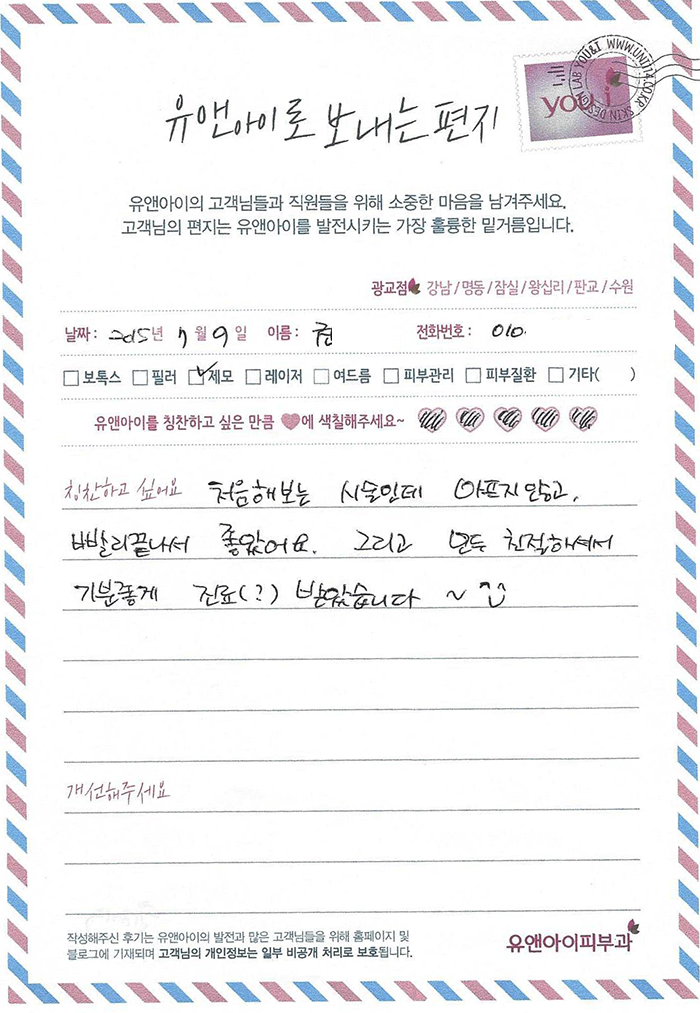 유앤아이로 보내는 편지
you i
SKIN DESIGN LAB YOU&I WWW.UNI114.CO.KR
유앤아이의 고객님들과 직원들을 위해 소중한 마음을 남겨주세요.
고객님의 편지는 유앤아이를 발전시키는 가장 훌륭한 밑거름입니다.
광교점 강남 / 명동 / 잠실 / 왕십리 / 판교 / 수원
날짜 : 2015년 7월 9일 이름 : 전화번호 : 010.
보톡스 필러 제모 레이저 여드름 피부관리 피부질환 기타( )
유앤아이를 칭찬하고 싶은 만큼 에 색칠해주세요~
칭찬하고 싶어요 처음해보는 시술인데 아프지 않고,
빨리끝나서 좋았어요. 그리고 모두 친절하셔서
기분좋게 진료(?) 받았습니다 ~ ^^
개선해주세요
작성해주신 후기는 유앤아이의 발전과 많은 고객님들을 위해 홈페이지 및
블로그에 기재되며 고객님의 개인정보는 일부 비공개 처리로 보호됩니다.
유앤아이피부과